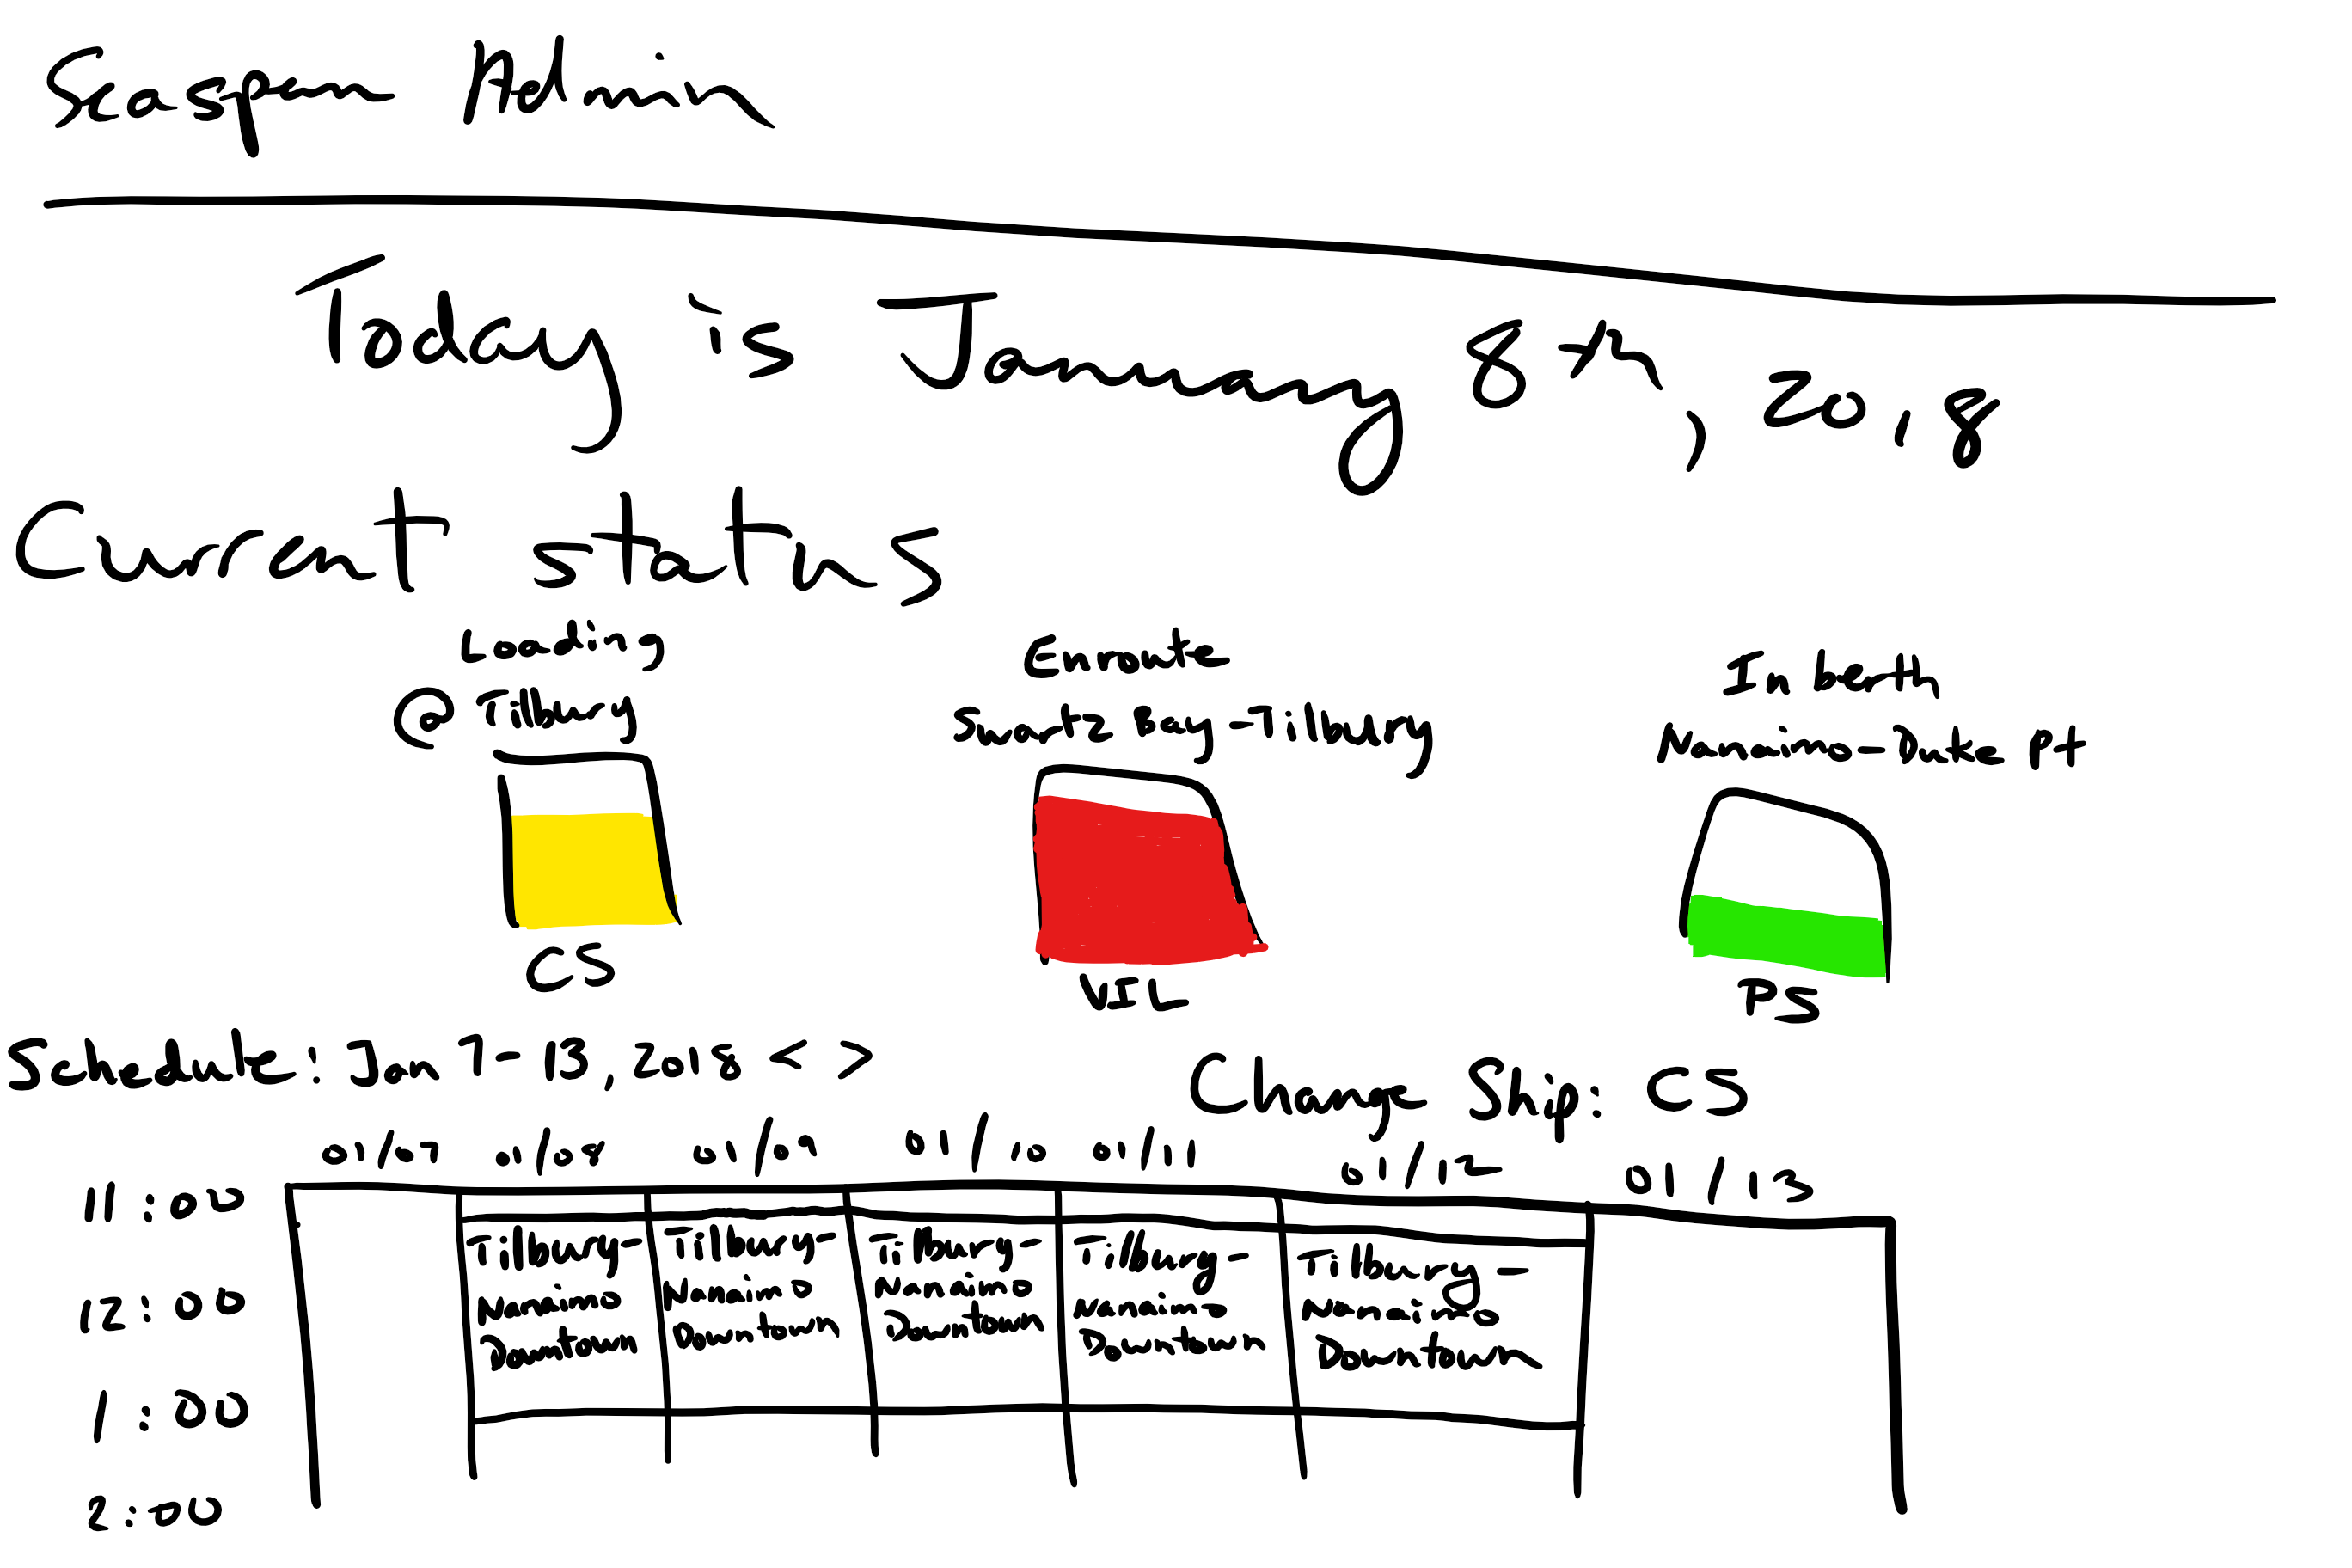 Seaspan Admin
Today is January 8th, 2018
Current status
Loading
@ Tilbury
Enroute
Swartz Bay - Tilbury
In berth
Nanaimo - Duke Pt
CS
VIL
PS
Schedule: Jan 7 - 13, 2018 < >
Change Ship: CS
01/07 01/08 01/09 01/10 01/11 01/12 01/13
11:00
12:00
1:00
2:00
Tilbury -
Nanaimo
Downtown
Tilbury -
Nanaimo
Downtown
Tilbury -
Nanaimo
Downtown
Tilbury -
Nanaimo
Downtown
Tilbury -
Nanaimo
Downtown